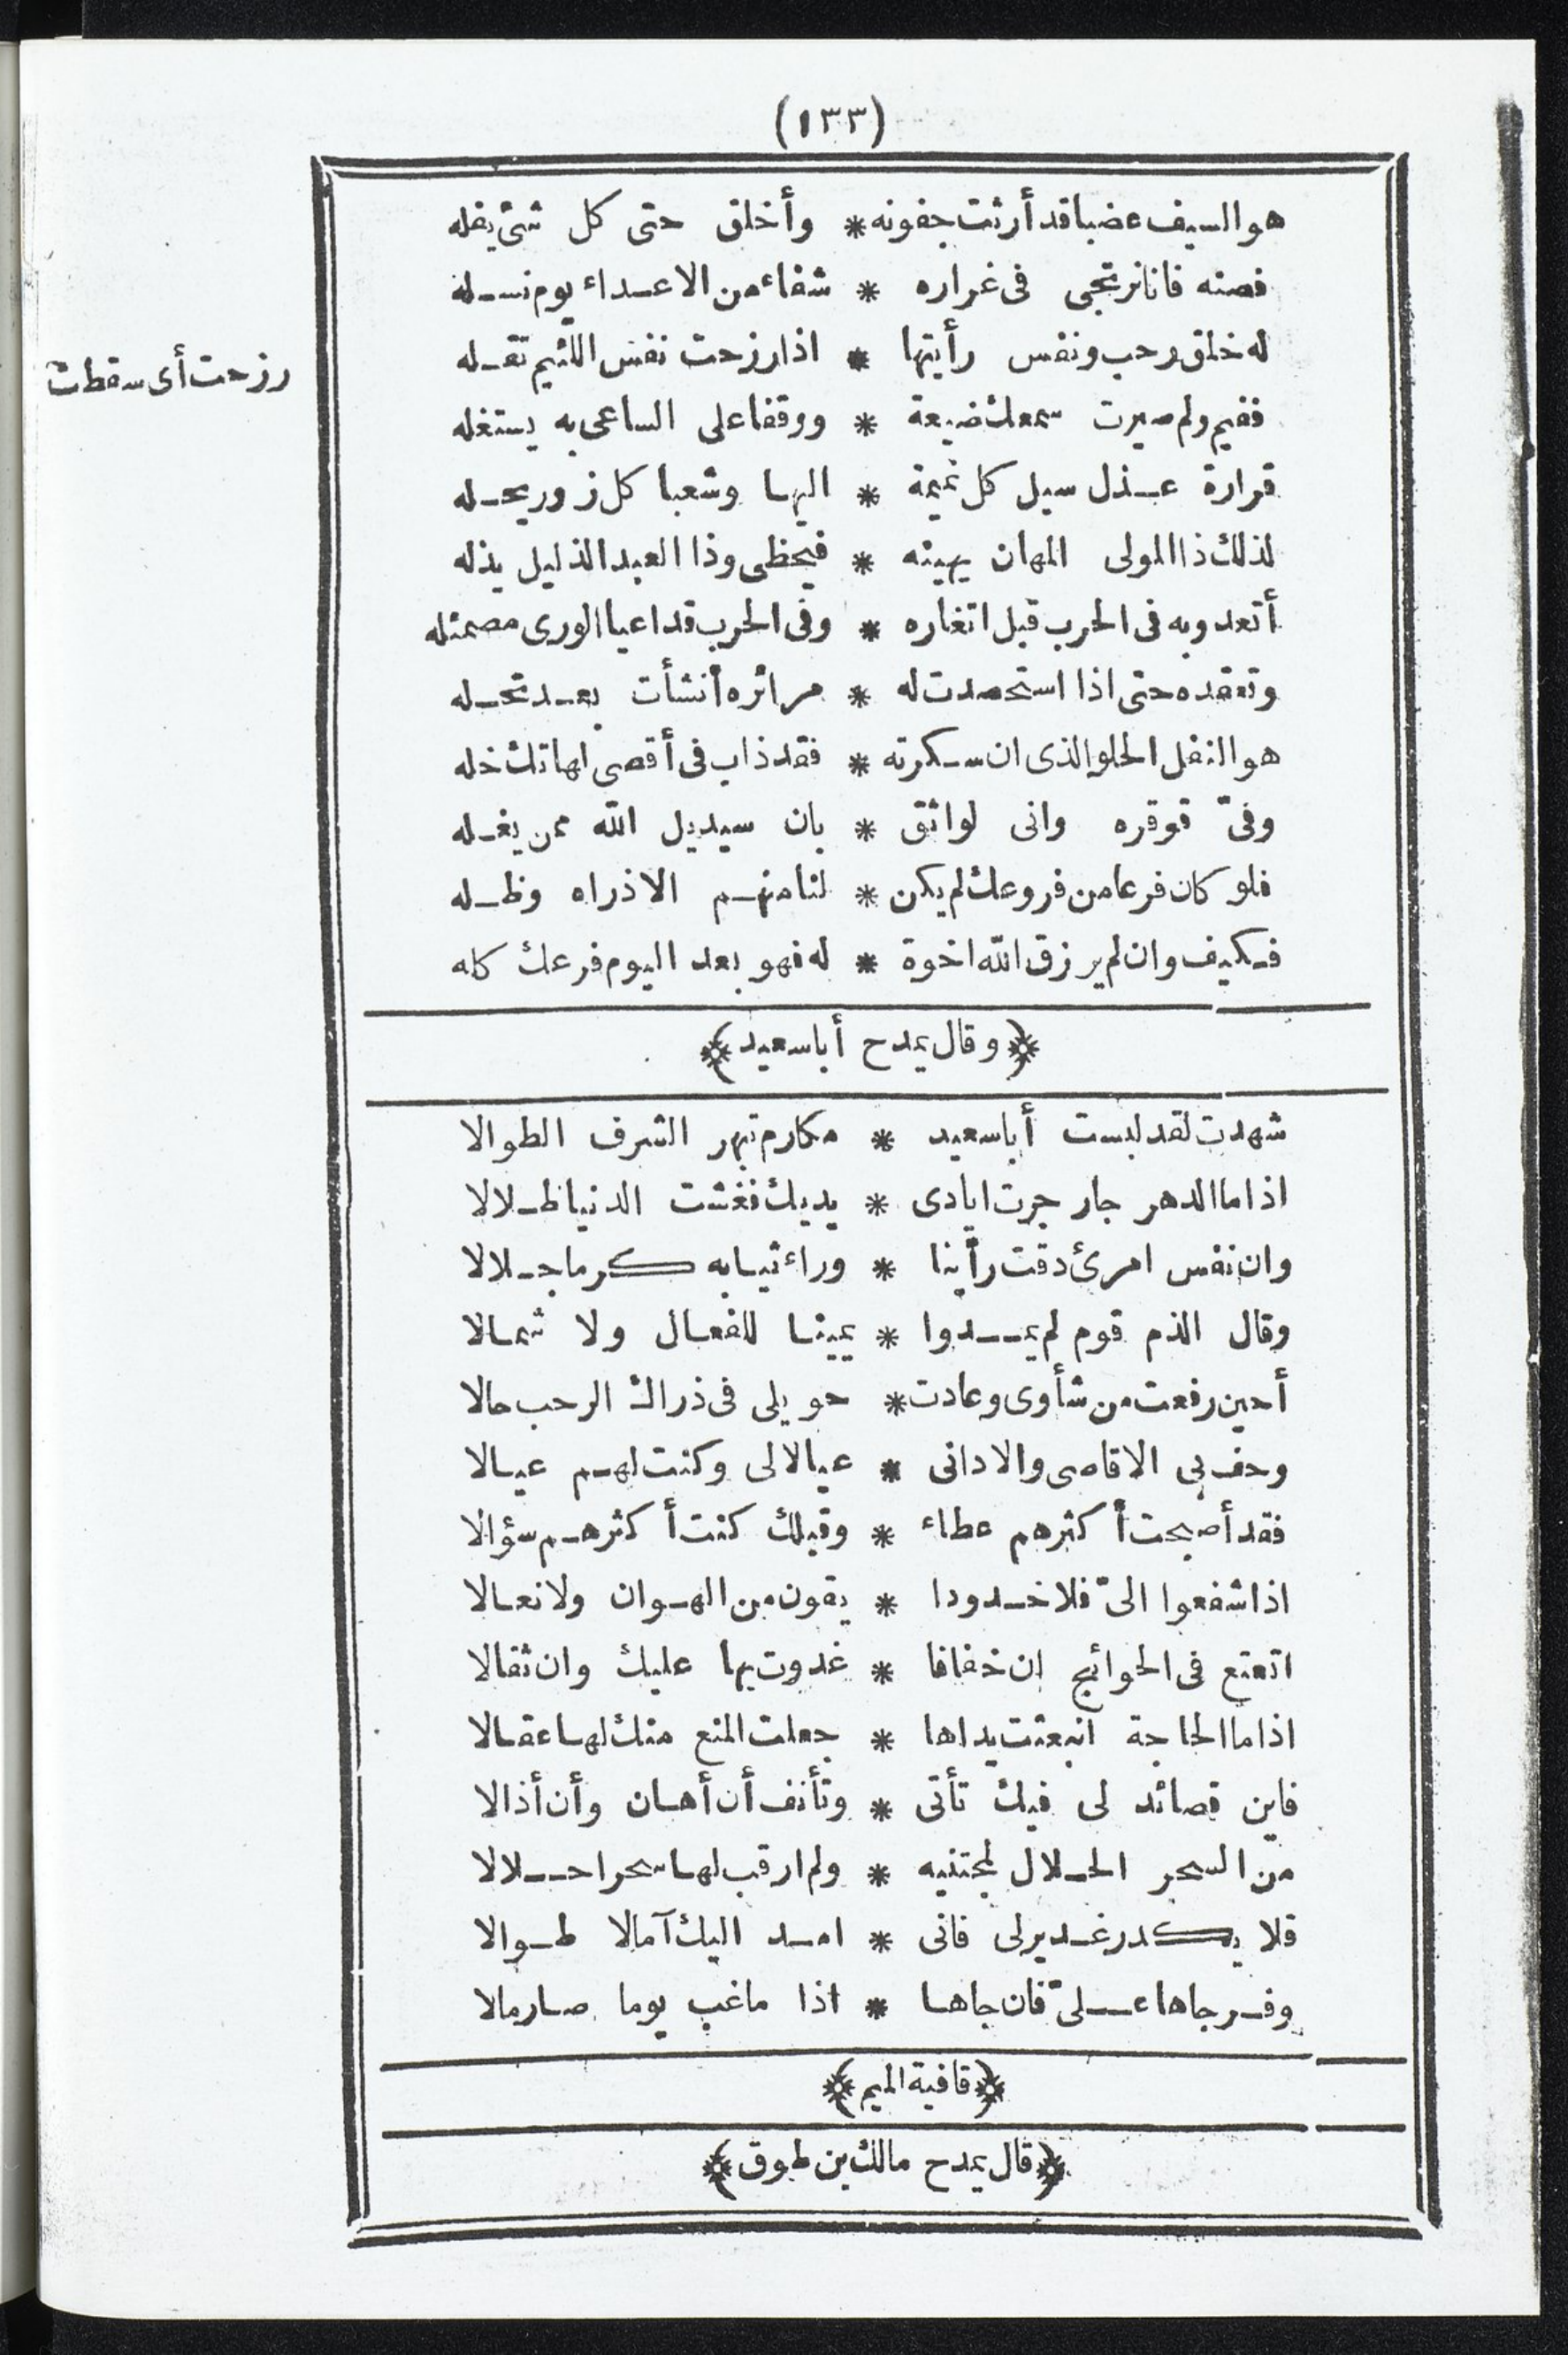 (١٣٣)
هو السيف عضبا قد أرثت جفونه * وأخلق حتى كل شئ يفله
فصنه فانا نرتجى فى غراره * شفاء من الاعداء يوم نسله
له خلق رحب ونفس رأيتها * اذا رزحت نفس اللئيم تقله
رزحت أى سقطت
ففيم ولم صيرت سمعك ضيعة * ووقفا على الساعى به يستغله
قرارة عذل سيل كل نميمة * اليها وشعبا كل زور يحله
لذلك ذا المولى المهان يهينه * فيحظى وذا العبد الذليل يذله
أتعدو به فى الحرب قبل اتغاره * وفى الحرب قد اعيا الورى مصمئله
وتعقده حتى اذا استحصدت له * مرائره أنشأت بعد تحله
هو النفل الحلو الذى ان سكرته * فقد ذاب فى أقصى لهاتك خله
وفىّ قوقره وانى لواثق * بان سيديل الله ممن يغله
فلو كان فرعا من فروعك لم يكن * لنا منهم الا ذراه وظله
فكيف وان لم يرزق الله اخوة * له فهو بعد اليوم فرعك كله
﴿وقال يمدح أبا سعيد﴾
شهدت لقد لبست أبا سعيد * مكارم تبهر الشرف الطوالا
اذا ما الدهر جار جرت ايادى * يديك فغشت الدنيا ظلالا
وان نفس امرئ دقت رأينا * وراء ثيابه كرما جلالا
وقال الذم قوم لم يمدوا * يمينا للفعال ولا شمالا
أحين رفعت من شأوى وعادت * حويلى فى ذراك الرحب حالا
وحف بى الاقاصى والادانى * عيالا لى وكنت لهم عيالا
فقد أصبحت أكثرهم عطاء * وقبلك كنت أكثرهم سؤالا
اذا شفعوا الىّ فلا خدودا * يقون من الهوان ولا نعالا
اتعتع فى الحوائج ان خفافا * غدوت بها عليك وان ثقالا
اذا ما الحاجة انبعثت يداها * جعلت المنع منك لها عقالا
فاين قصائد لى فيك تأتى * وتأنف أن أهان وأن أذالا
من السحر الحلال لمجتنيه * ولم ارقب لها سحرا حلالا
فلا يكدر غدير لى فانى * امد اليك آمالا طوالا
وفر جاها علىّ فان جاها * اذا ما غب يوما صار مالا
﴿قافية الميم﴾
﴿قال يمدح مالك بن طوق﴾